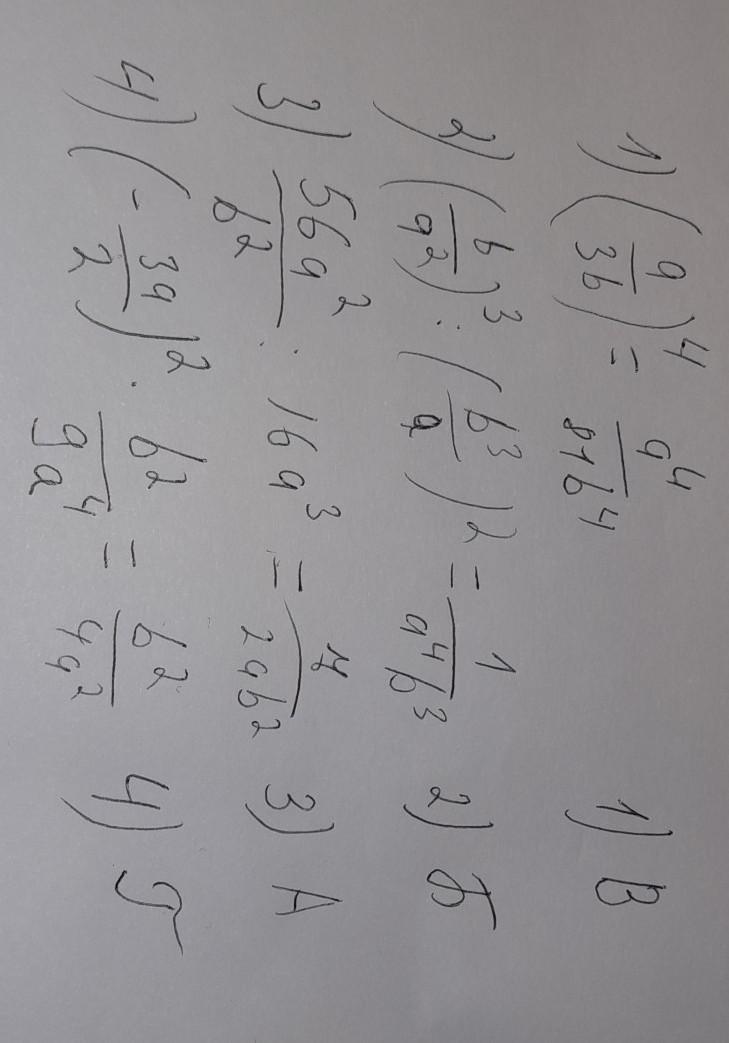 1) (a/3b)^4 = a^4/81b^4 1) В
2) (b/a^2)^3 : (b^3/a)^2 = 1/a^4b^3 2) Б
3) 56a^2/b^2 : 16a^3 = 7/2ab^2 3) А
4) (-3a/2)^2 · b^2/9a^4 = b^2/4a^2 4) Г